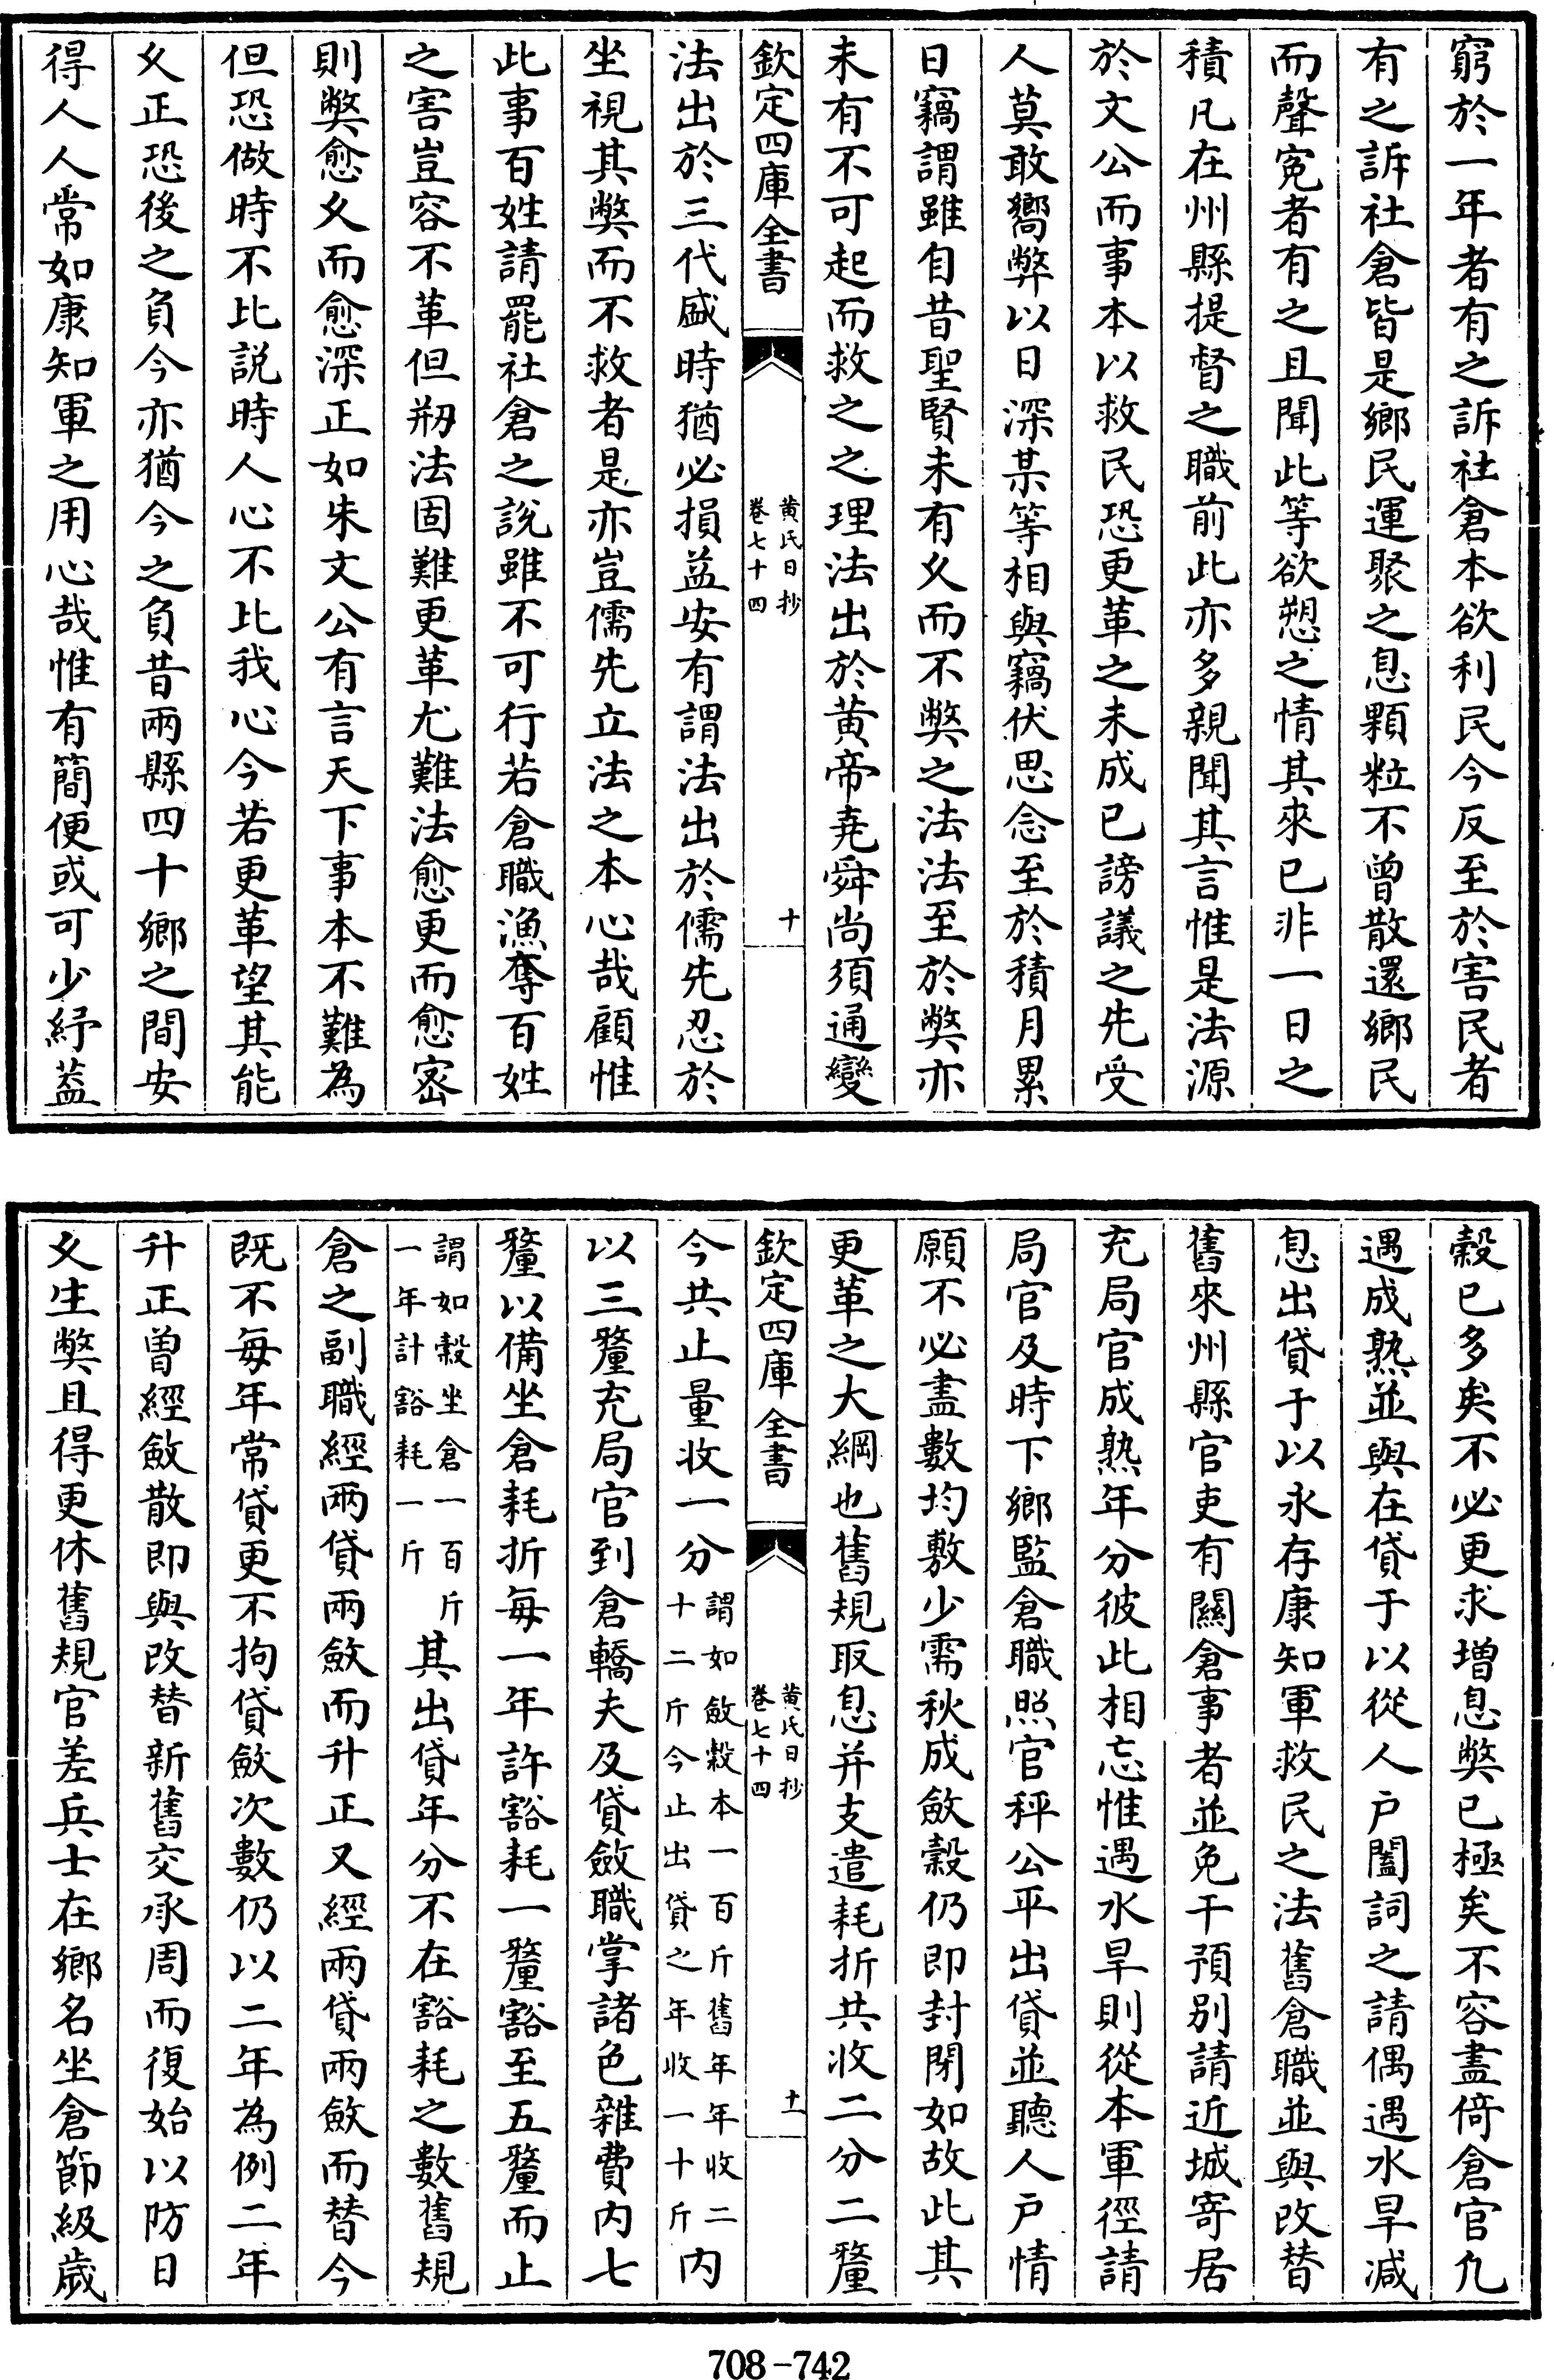 窮於一年者有之訴社倉本欲利民今反至於害民者
有之訴社倉皆是鄉民運聚之息顆粒不曾散還鄉民
而聲寃者有之且聞此等欲愬之情其來已非一日之
積凡在州縣提督之職前此亦多親聞其言惟是法源
於文公而事本以救民恐更革之未成已謗議之先受
人莫敢嚮弊以日深某等相與竊伏思念至於積月累
日竊謂雖自昔聖賢未有乆而不獘之法法至於獘亦
未有不可起而救之之理法出於黄帝堯舜尚須通變
欽定四庫全書
黄氏日抄
卷七十四
十
法出於三代盛時猶必損益安有謂法出於儒先忍於
坐視其獘而不救者是亦豈儒先立法之本心哉顧惟
此事百姓請罷社倉之説雖不可行若倉職漁奪百姓
之害豈容不革但刱法固難更革尤難法愈更而愈宻
則獘愈乆而愈深正如朱文公有言天下事本不難為
但恐做時不比説時人心不比我心今若更革望其能
乆正恐後之負今亦猶今之負昔兩縣四十鄉之間安
得人人常如康知軍之用心哉惟有簡便或可少紓葢
穀已多矣不必更求増息獘已極矣不容盡倚倉官凡
遇成熟並與在貸于以從人户闔詞之請偶遇水旱減
息出貸于以永存康知軍救民之法舊倉職並與改替
舊來州縣官吏有闗倉事者並免干預别請近城寄居
充局官成熟年分彼此相忘惟遇水旱則從本軍徑請
局官及時下鄉監倉職照官秤公平出貸並聽人户情
願不必盡數均敷少需秋成斂穀仍即封閉如故此其
更革之大綱也舊規取息并支遣耗折共收二分二釐
欽定四庫全書
黄氏日抄
卷七十四
十一
今共止量收一分謂如斂穀本一百斤舊年年收二
十二斤今止出貸之年收一十斤內
以三釐充局官到倉轎夫及貸斂職掌諸色雜費内七
釐以備坐倉耗折每一年許豁耗一釐豁至五釐而止
謂如穀坐倉一百斤
一年計豁耗一斤其出貸年分不在豁耗之數舊規
倉之副職經兩貸兩斂而升正又經兩貸兩斂而替今
既不每年常貸更不拘貸斂次數仍以二年為例二年
升正曾經斂散即與改替新舊交承周而復始以防日
乆生獘且得更休舊規官差兵士在鄉名坐倉節級歳
708-742